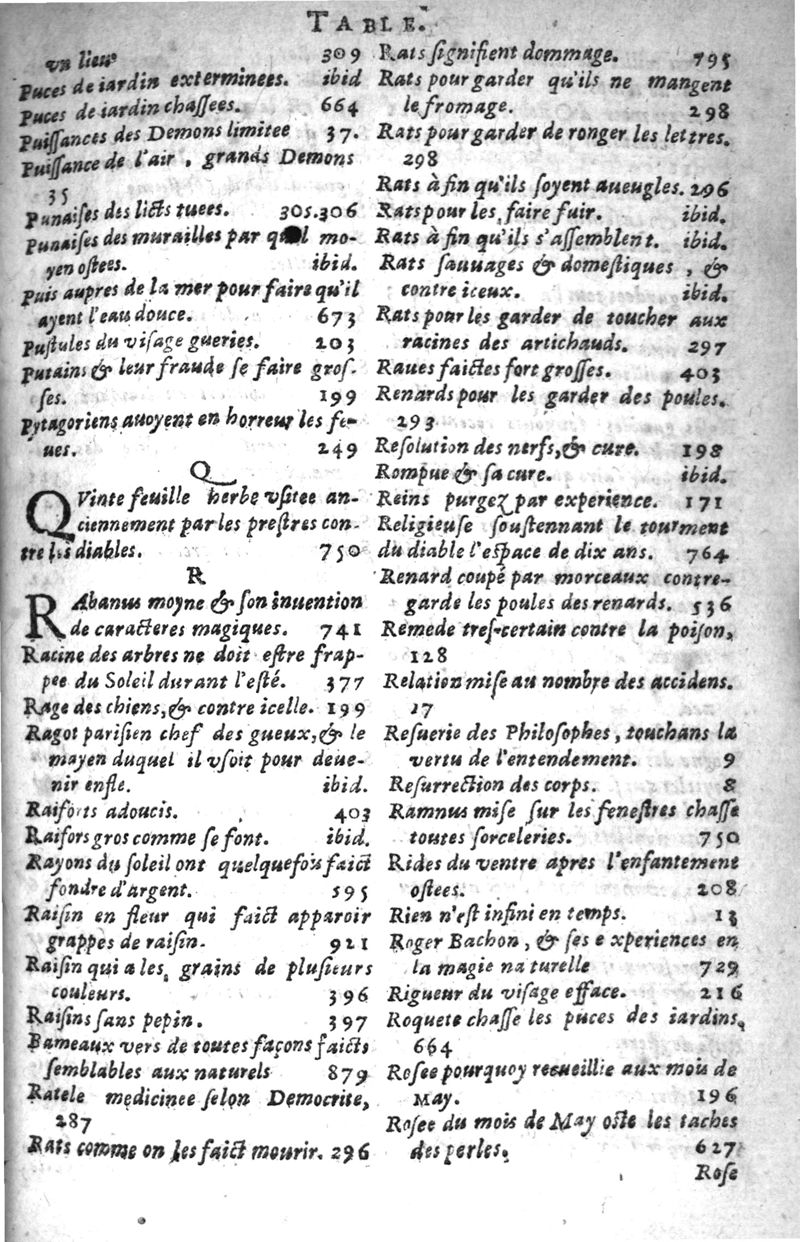 TABLE.
vn lieu 309
Puces de iardin exterminees. ibid
Puces de iardin chaſſees. 664
Puiſſances des Demons limitee 37.
Puiſſance de l'air, grands Demons
35
Punaiſes des licts tuees. 305.306
Punaiſes des murailles par quel mo-
yen oſtees. ibid.
Puis aupres de la mer pour faire qu'il
ayent l'eau douce. 673
Puſtules du viſage gueries. 203
Putains & leur fraude ſe faire groſ-
ſes. 199
Pytagoriens auoyent en horreur les fe-
ues. 249
Q
QVinte feuille herbe vſitee an-
ciennement par les preſtres con-
tre les diables. 750
R
RAbanus moyne & ſon inuention
de caracteres magiques. 741
Racine des arbres ne doit eſtre frap-
pee du Soleil durant l'eſté. 377
Rage des chiens, & contre icelle. 199
Ragot pariſien chef des gueux, & le
mayen duquel il vſoit pour deue-
nir enfle. ibid.
Raiforts adoucis. 403
Raifors gros comme ſe font. ibid.
Rayons du ſoleil ont quelquefois faict
fondre d'argent. 595
Raiſin en fleur qui faict apparoir
grappes de raiſin. 921
Raiſin qui a les grains de pluſieurs
couleurs. 396
Raiſins ſans pepin. 397
Bameaux vers de toutes façons faicts
ſemblables aux naturels 879
Ratele medicinee ſelon Democrite,
287
Rats comme on les faict mourir. 296
Rats ſignifient dommage. 795
Rats pour garder qu'ils ne mangent
le fromage. 298
Rats pour garder de ronger les lettres.
298
Rats à fin qu'ils ſoyent aueugles. 296
Rats pour les faire fuir. ibid.
Rats à fin qu'ils s'aſſemblent. ibid.
Rats ſauuages & domeſtiques, &
contre iceux. ibid.
Rats pour les garder de toucher aux
racines des artichauds. 297
Raues faictes fort groſſes. 403
Renards pour les garder des poules.
293
Reſolution des nerfs, & cure. 198
Rompue & ſa cure. ibid.
Reins purgez par experience. 171
Religieuſe ſouſtennant le tourment
du diable l'eſpace de dix ans. 764
Renard coupé par morceaux contre-
garde les poules des renards. 536
Remede treſ-certain contre la poiſon,
128
Relation miſe au nombre des accidens.
17
Reſuerie des Philoſophes, touchans la
vertu de l'entendement. 9
Reſurrection des corps. 8
Ramnus miſe ſur les feneſtres chaſſe
toutes ſorceleries. 750
Rides du ventre apres l'enfantement
oſtees. 208
Rien n'eſt infini en temps. 13
Roger Bachon, & ſes e xperiences en
la magie na turelle 729
Rigueur du viſage efface. 216
Roquete chaſſe les puces des iardins,
664
Roſee pourquoy recueillie aux mois de
May. 196
Roſee du mois de May oſte les taches
des perles. 627
Roſe